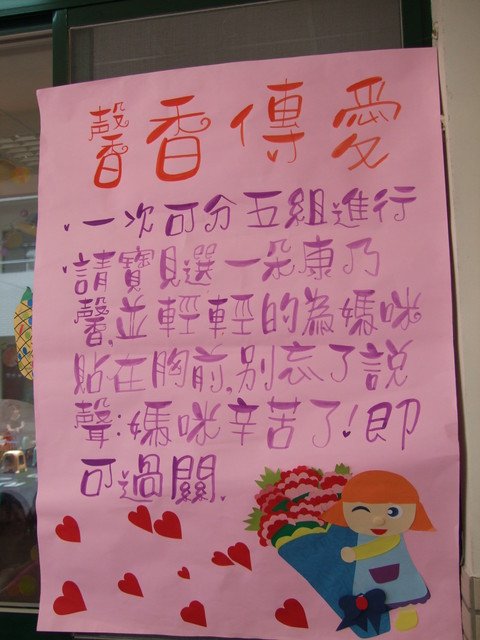 馨香傳愛
·一次可分五組進行
·請寶貝選一朵康乃
馨,並輕輕的為媽咪
貼在胸前,別忘了說
聲:媽咪辛苦了!即
可過關.